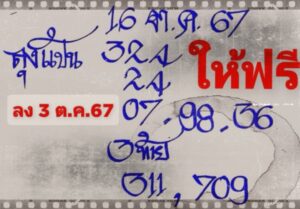 16 ต.ค. 67
ลุงแป๋น 324
24 ให้ฟรี
ลง 3 ต.ค.67 07.98.36
3 ท้าย
311, 709